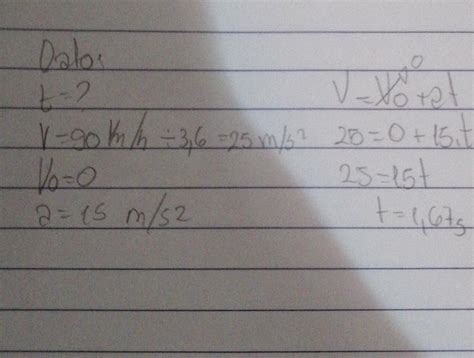 Datos
t=?
V=90 Km/h ÷3,6 =25 m/s²
Vo=0
a=15 m/s2
0
V=Vo+at
25=0+15.t
25=15t
t=1,67s